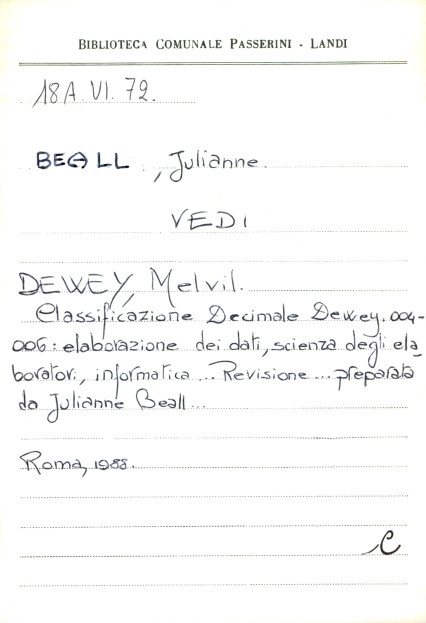 BIBLIOTECA COMUNALE PASSERINI - LANDI
18A. VI. 72.
BEALL, Julianne.
VEDI
DEWEY, Melvil.
Classificazione Decimale Dewey. 004-
006: elaborazione dei dati, scienza degli ela
boratori, informatica... Revisione... preparata
da Julianne Beall...
Roma, 1988.
C